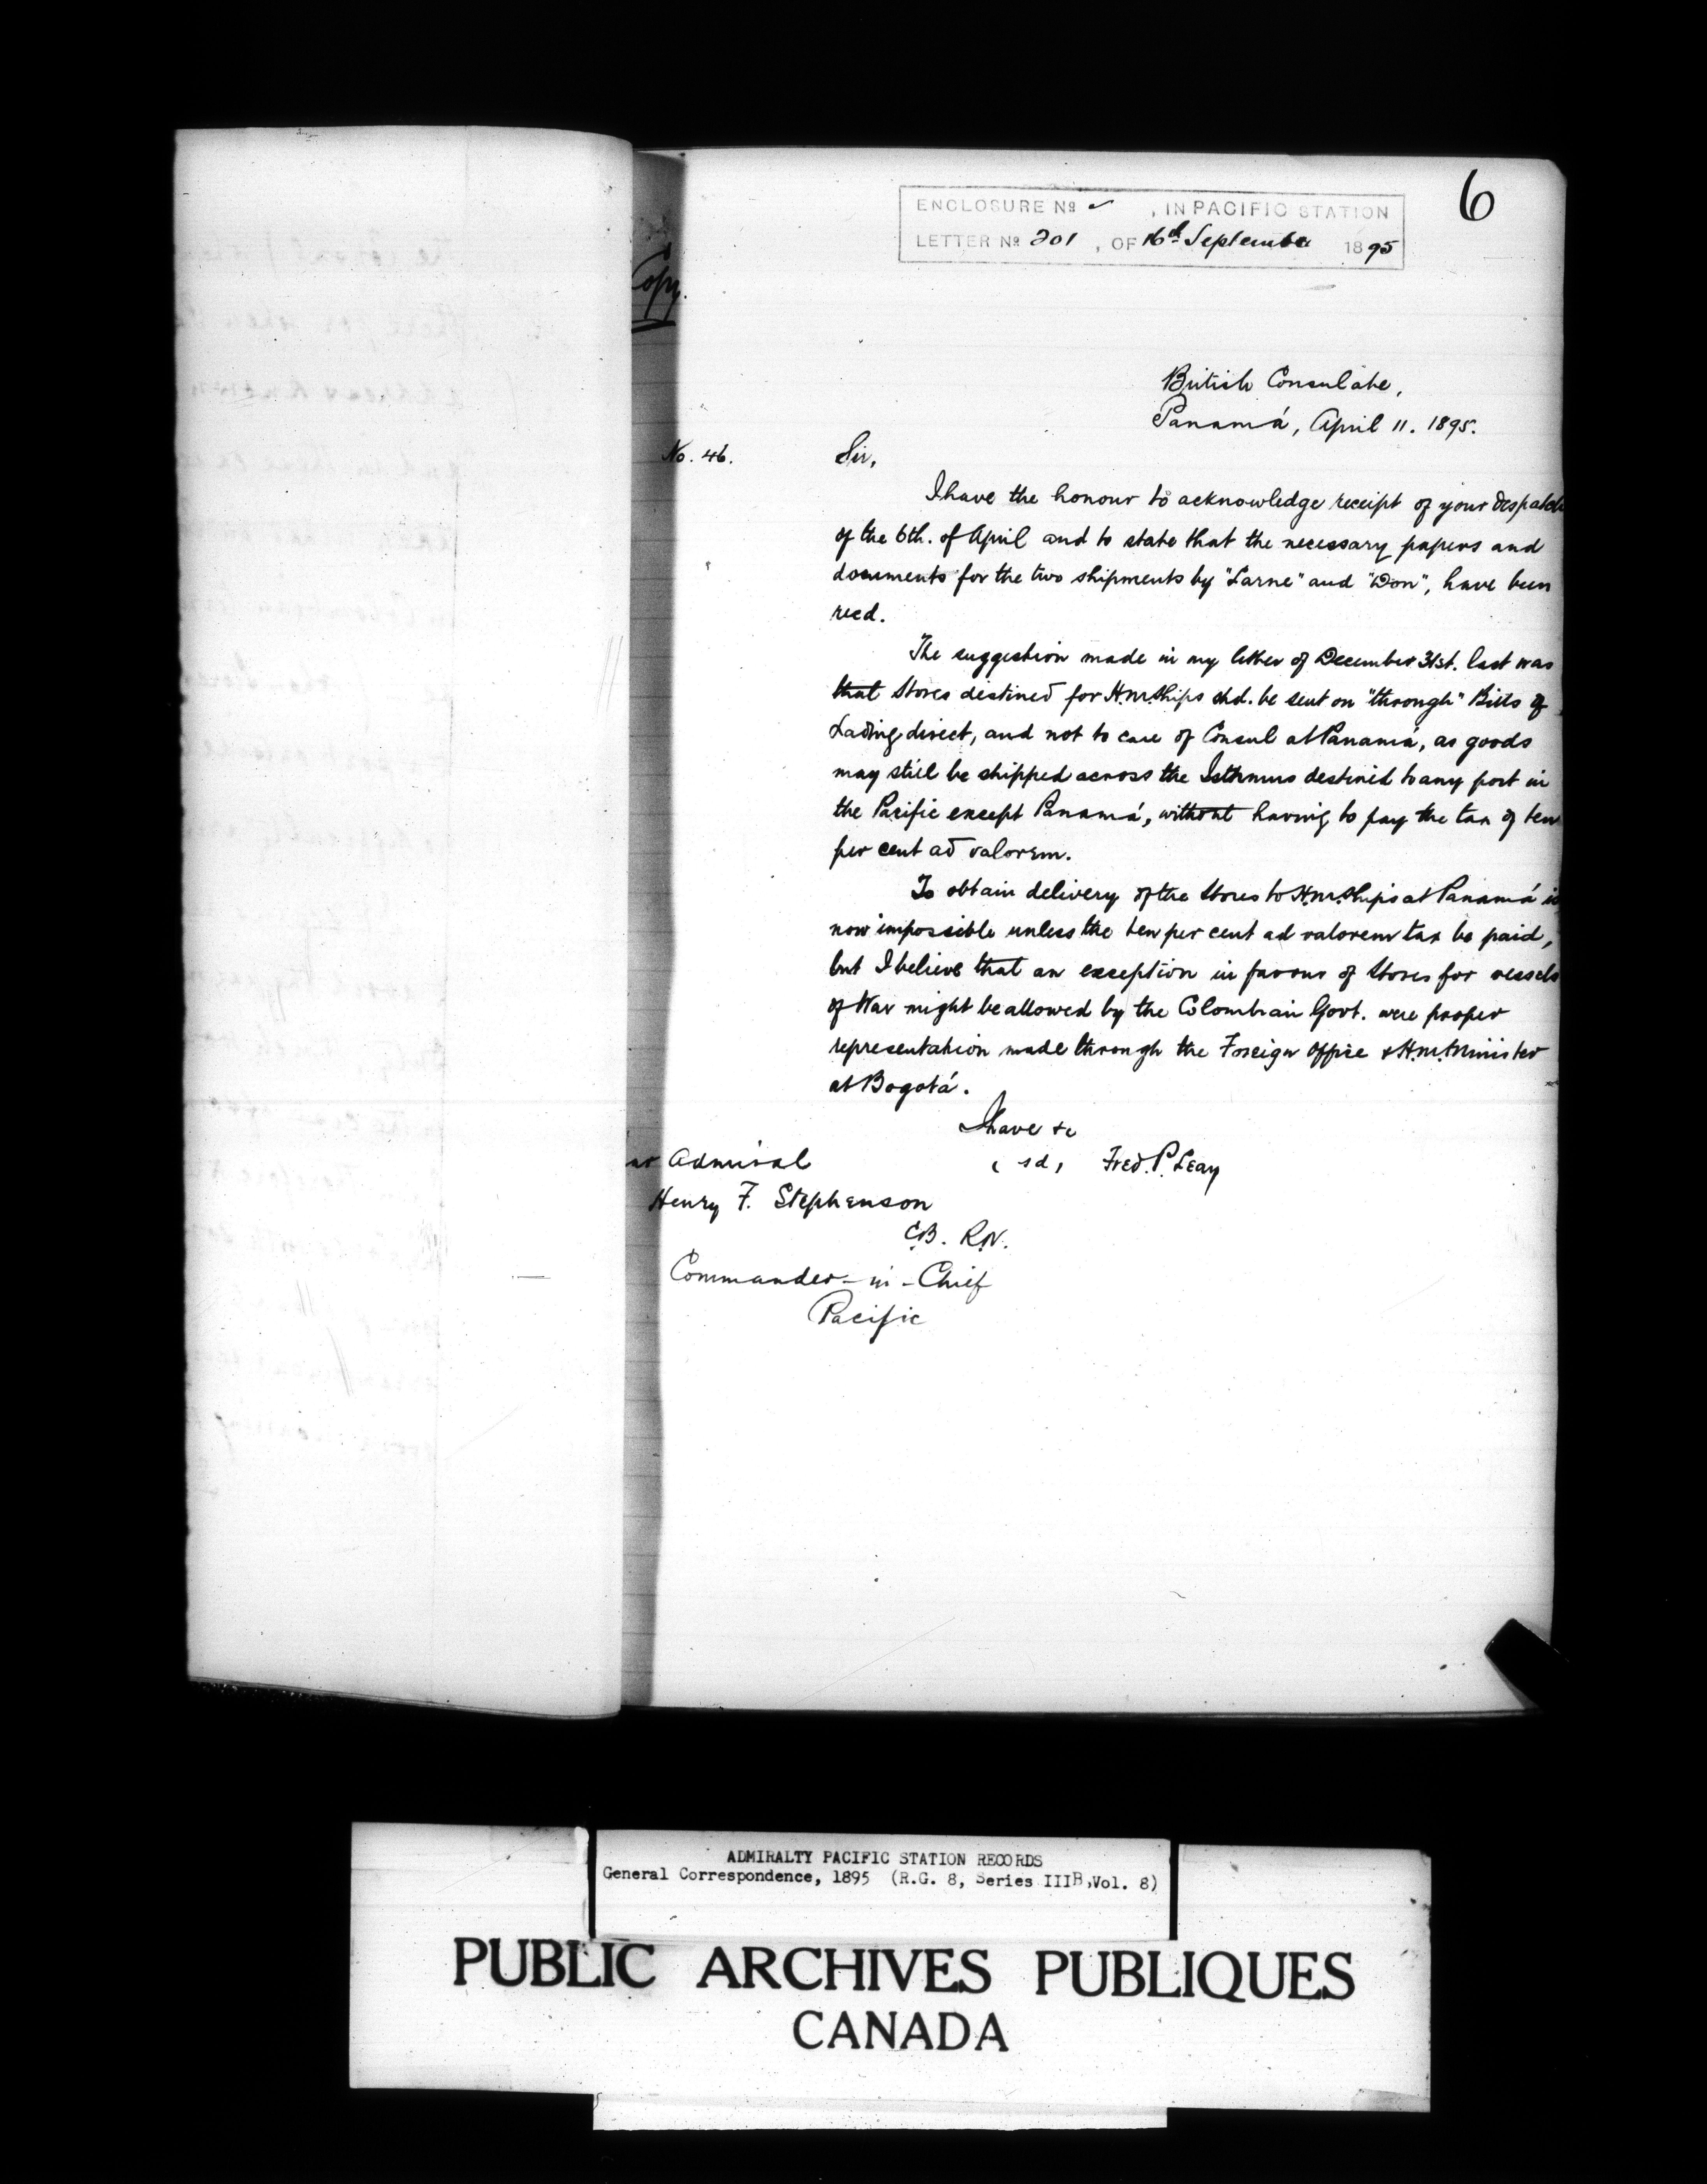 6
ENCLOSURE No ✓ , IN PACIFIC STATION
LETTER No 201 , OF 16th September 1895
Copy.
British Consulate,
Panamá, April 11. 1895.
No. 46.
Sir,
I have the honour to acknowledge receipt of your despatch
of the 6th. of April and to state that the necessary papers and
documents for the two shipments by "Larne" and "Don", have been
recd.
The suggestion made in my letter of December 31st. last was
that Stores destined for H.M. Ships shd. be sent on "through" Bills of
Lading direct, and not to care of Consul at Panamá, as goods
may still be shipped across the Isthmus destined to any port in
the Pacific except Panamá, without having to pay the tax of ten
per cent ad valorem.
To obtain delivery of the Stores to H.M. Ships at Panamá is
now impossible unless the ten per cent ad valorem tax be paid,
but I believe that an exception in favour of Stores for vessels
of War might be allowed by the Colombian Govt. were proper
representation made through the Foreign Office & H.M. Minister
at Bogotá.
I have &c
(sd) Fred. P. Leay
Admiral
Henry F. Stephenson
C.B. R.N.
Commander-in-Chief
Pacific
ADMIRALTY PACIFIC STATION RECORDS
General Correspondence, 1895 (R.G. 8, Series IIIB, Vol. 8)
PUBLIC ARCHIVES PUBLIQUES
CANADA